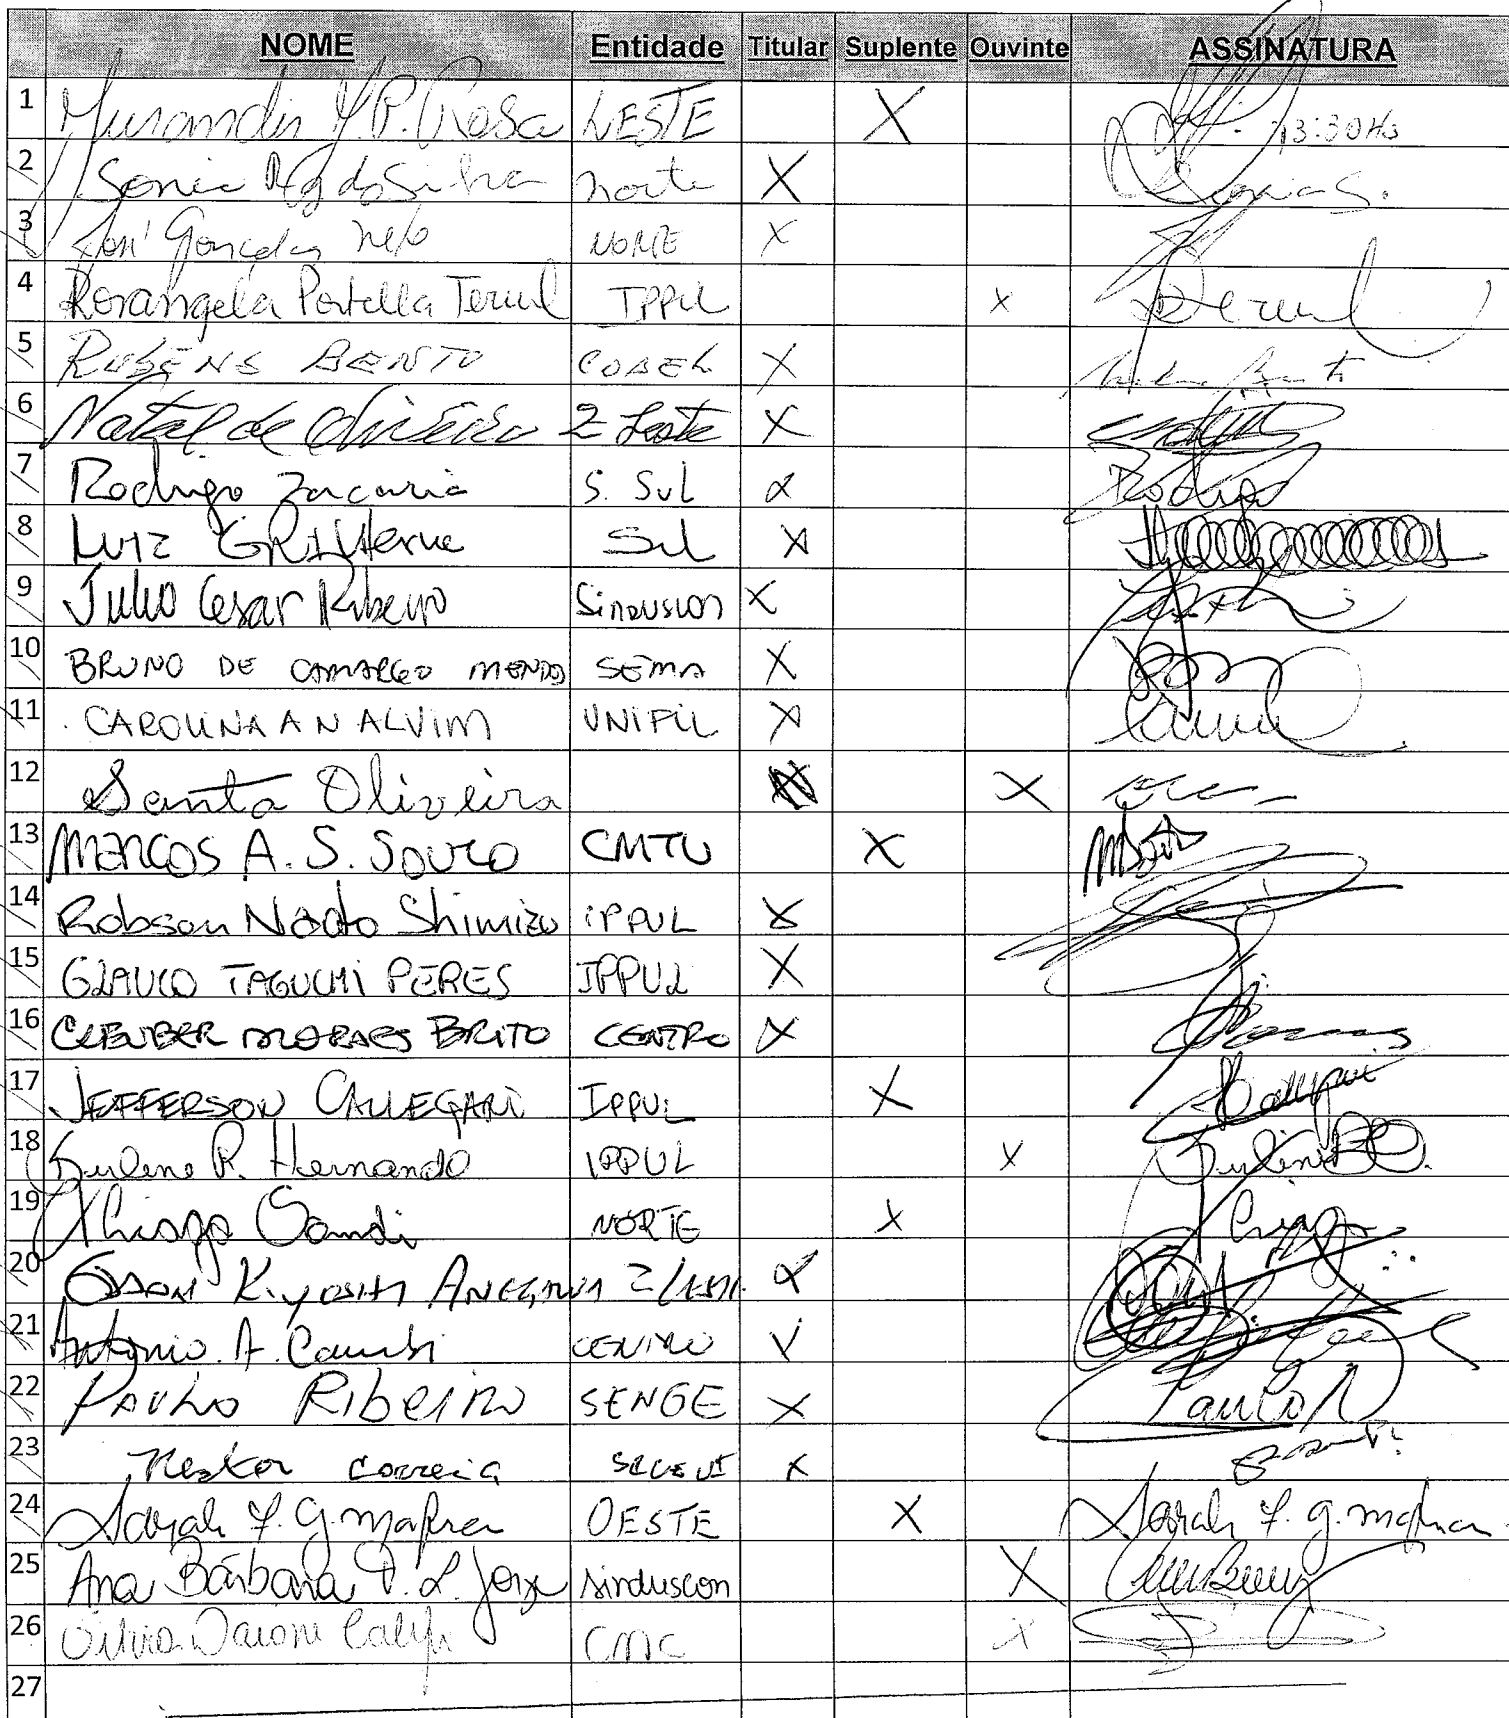 NOME Entidade Titular Suplente Ouvinte ASSINATURA
1 P. Rosa LESTE X 13:30Hs
2 Sonia da Silva norte X Sonia S.
3 José Gonçalves Neto X
4 Rosangela Portella Teruel IPPUL x Teruel
5 RUBENS BENTO CODEL X
6 Natal de Oliveira Z Leste X
7 Rodrigo Zacaria S. Sul X Rodrigo
8 LUIZ Sul X
9 Julio Cesar Ribeiro Sinduscon X
10 BRUNO DE CAMARGO MENDES SEMA X
11 CAROLINA A N ALVIM UNIFIL X
12 Santa Oliveira X
13 MARCOS A. S. CMTU X
14 Robson Naoto Shimizu IPPUL X
15 GLAUCO TAGUCHI PERES IPPUL X
16 CLEUBER MORAES BRITO CENTRO X
17 JEFFERSON CALLEGARI IPPUL X
18 R. Hernando IPPUL X
19 Thiago NORTE X Thiago
20 X
21 Antonio A. CENTRO V
22 PAULO RIBEIRO SENGE X Paulo R
23 Nestor Correia X
24 Sarah F. G. Mafra OESTE X Sarah F. G. Mafra
25 Ana Bárbara Jorge Sinduscon X
26 CMC X
27